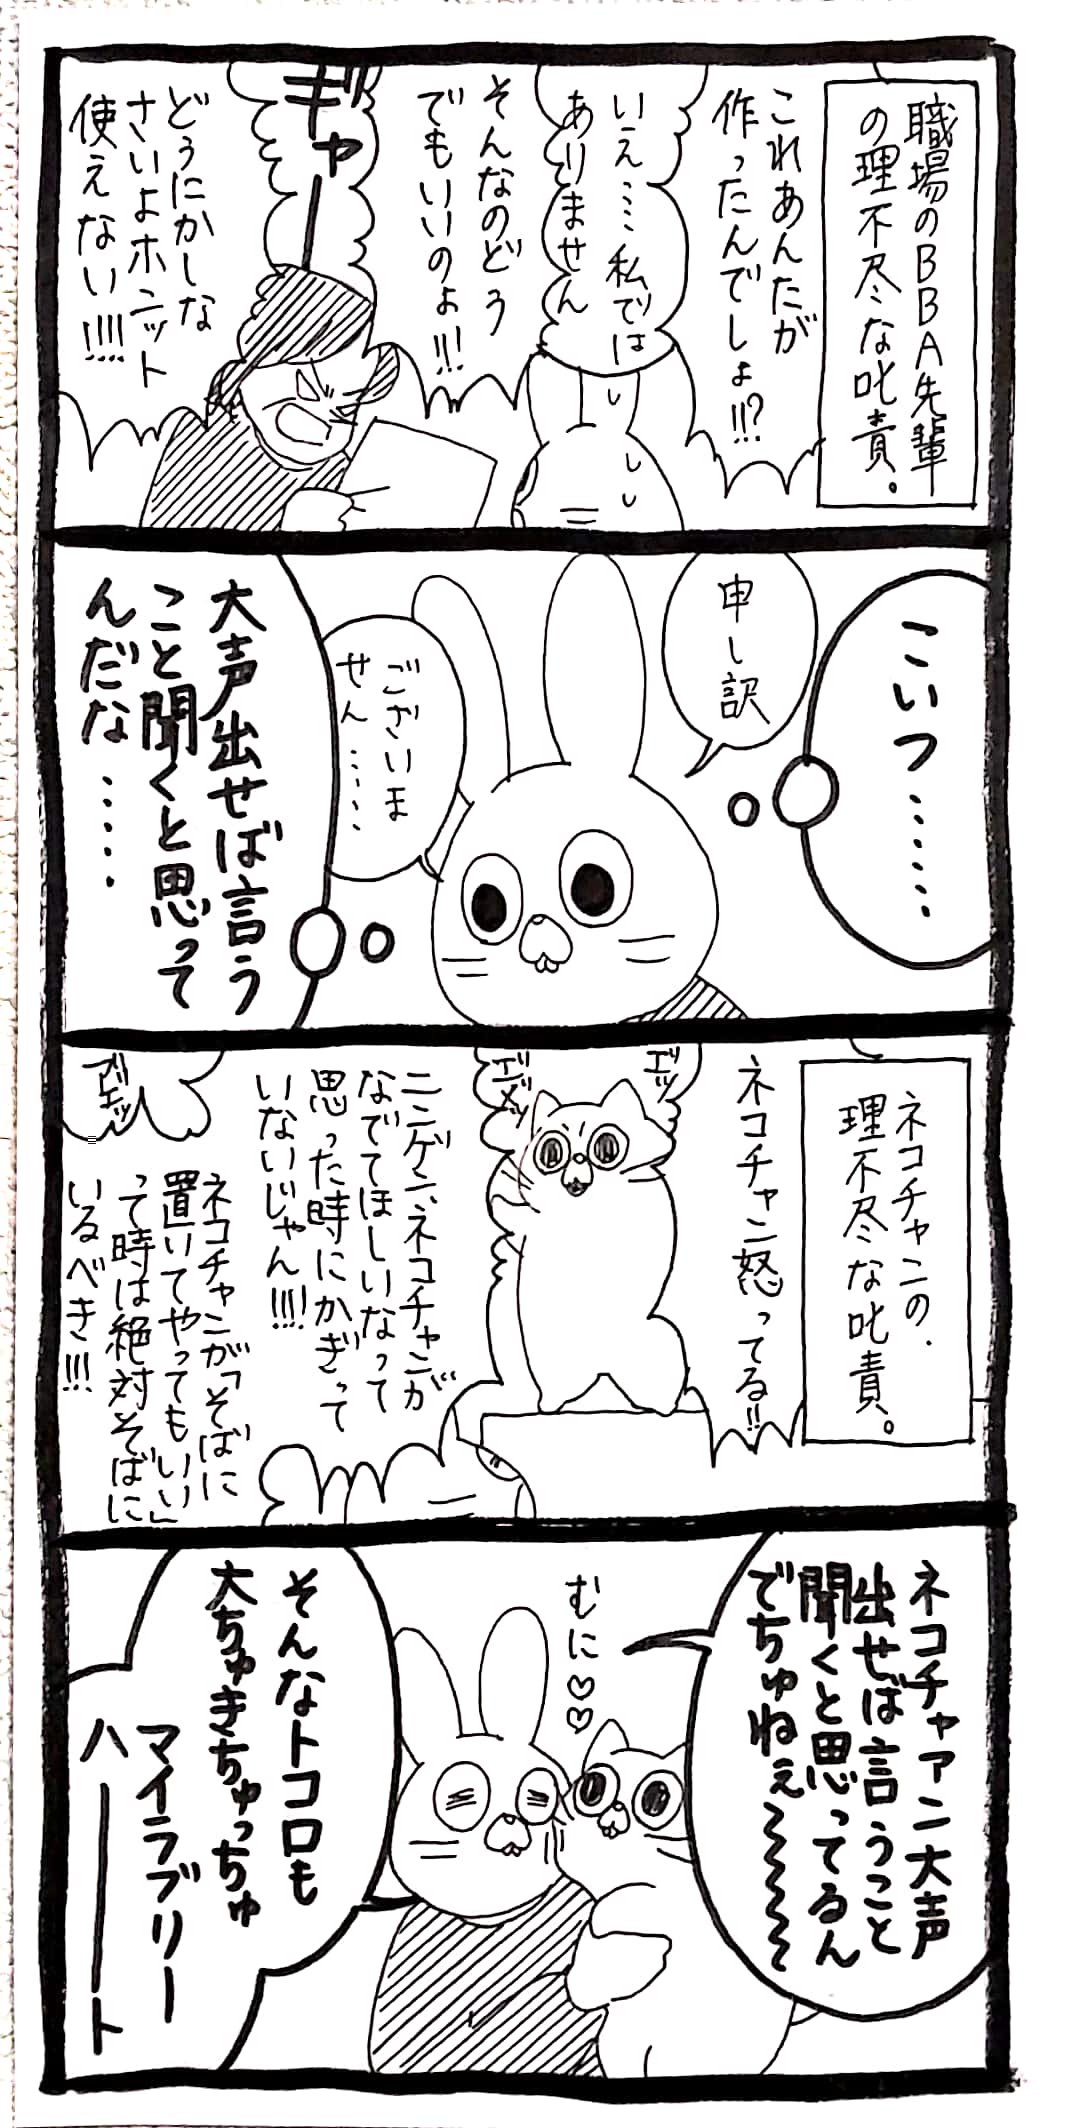 職場のBBA先輩
の理不尽な叱責。
これあんたが
作ったんでしょ!!?
いえ……私では
ありません
そんなのどう
でもいいのょ!!!
ギャー
どうにかしな
さいよホニット
使えない!!!!
こいつ……
申し訳
ございま
せん……
大声出せば言う
こと聞くと思って
んだな……
ネコチャンの
理不尽な叱責。
ネコチャン怒ってる!!
エッ
ニンゲン、ネコチャンが
なでてほしいなって
思った時にかぎって
いないじゃん!!!!
ネコチャンが「そばに
置いてやってもいい」
って時は絶対そばに
いるべき!!!
ネコチャァン大声
出せば言うこと
聞くと思ってるん
でちゅねぇ〜〜〜〜
むに♡♡
そんなトコロも
大ちゅきちゅっちゅ
マイラブリー
ハーート